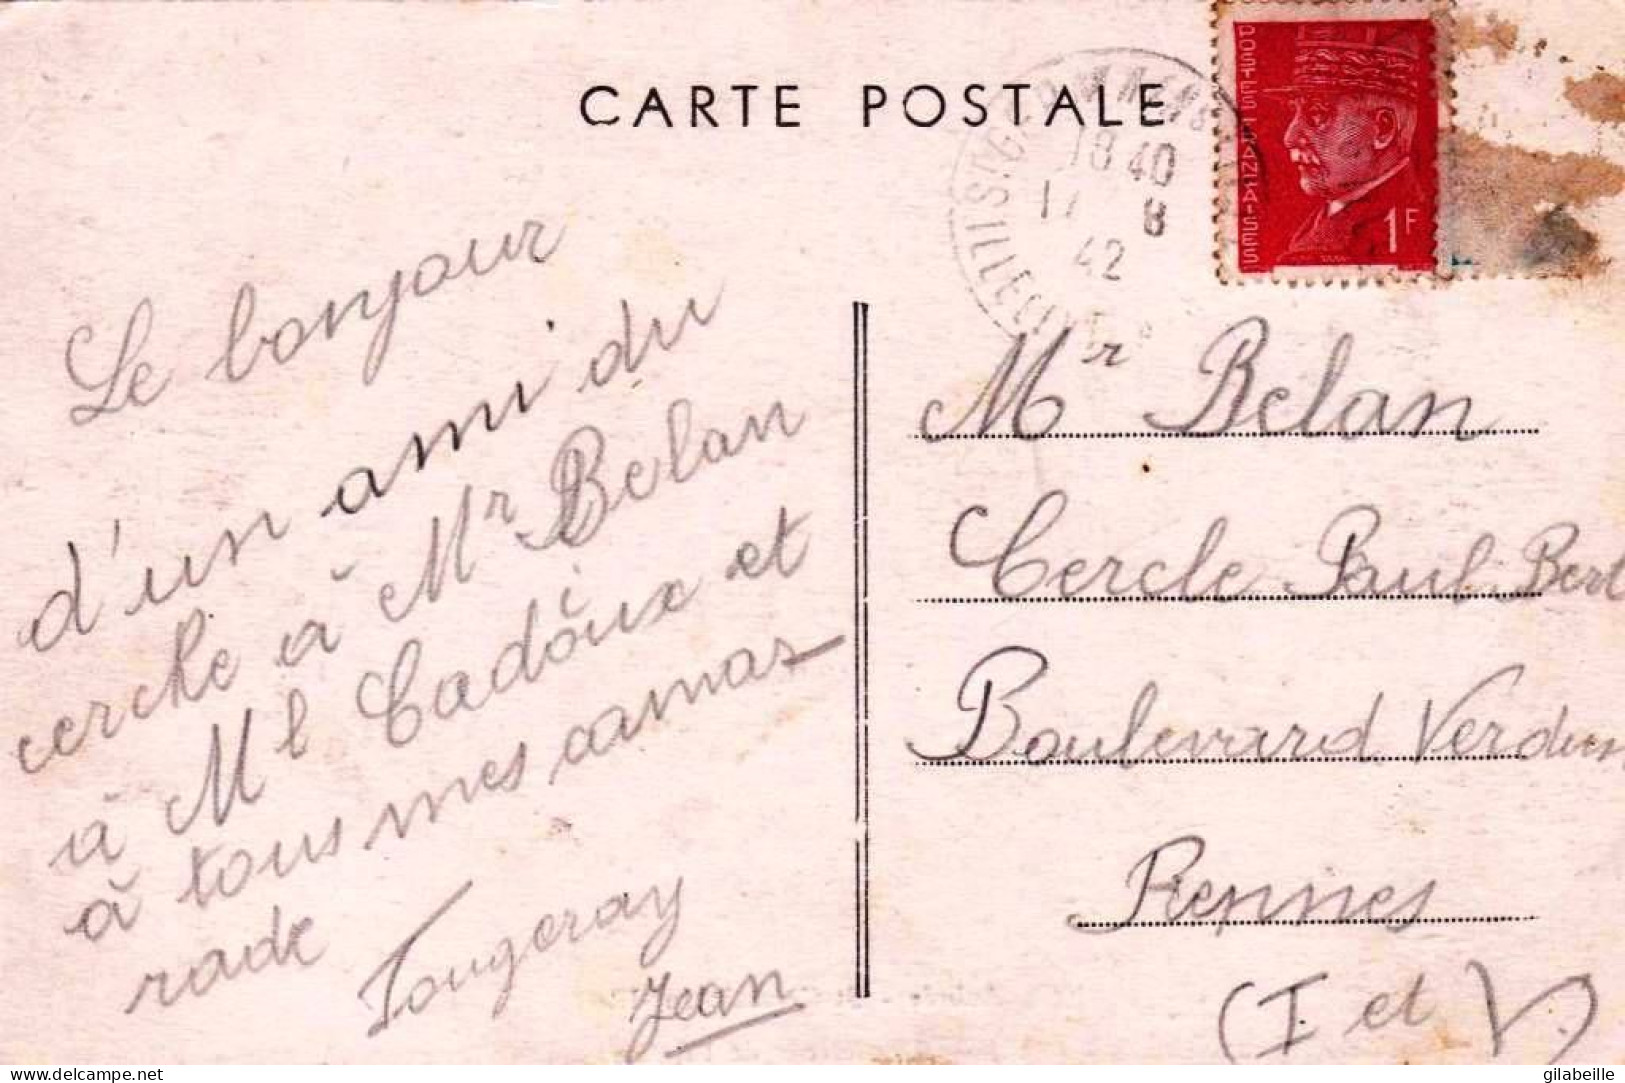 CARTE POSTALE
POSTES FRANÇAISES
1F
18 40
17 8
42
Le bonjour
d'un ami du
cercle à Mr Belan
à Ml Cadoux et
à tous mes camas-
rade
Fougeray
Jean
Mr Belan
Cercle Paul Bert
Boulevard Verdun
Rennes
(I et V)
delcampe.net
gilabeille